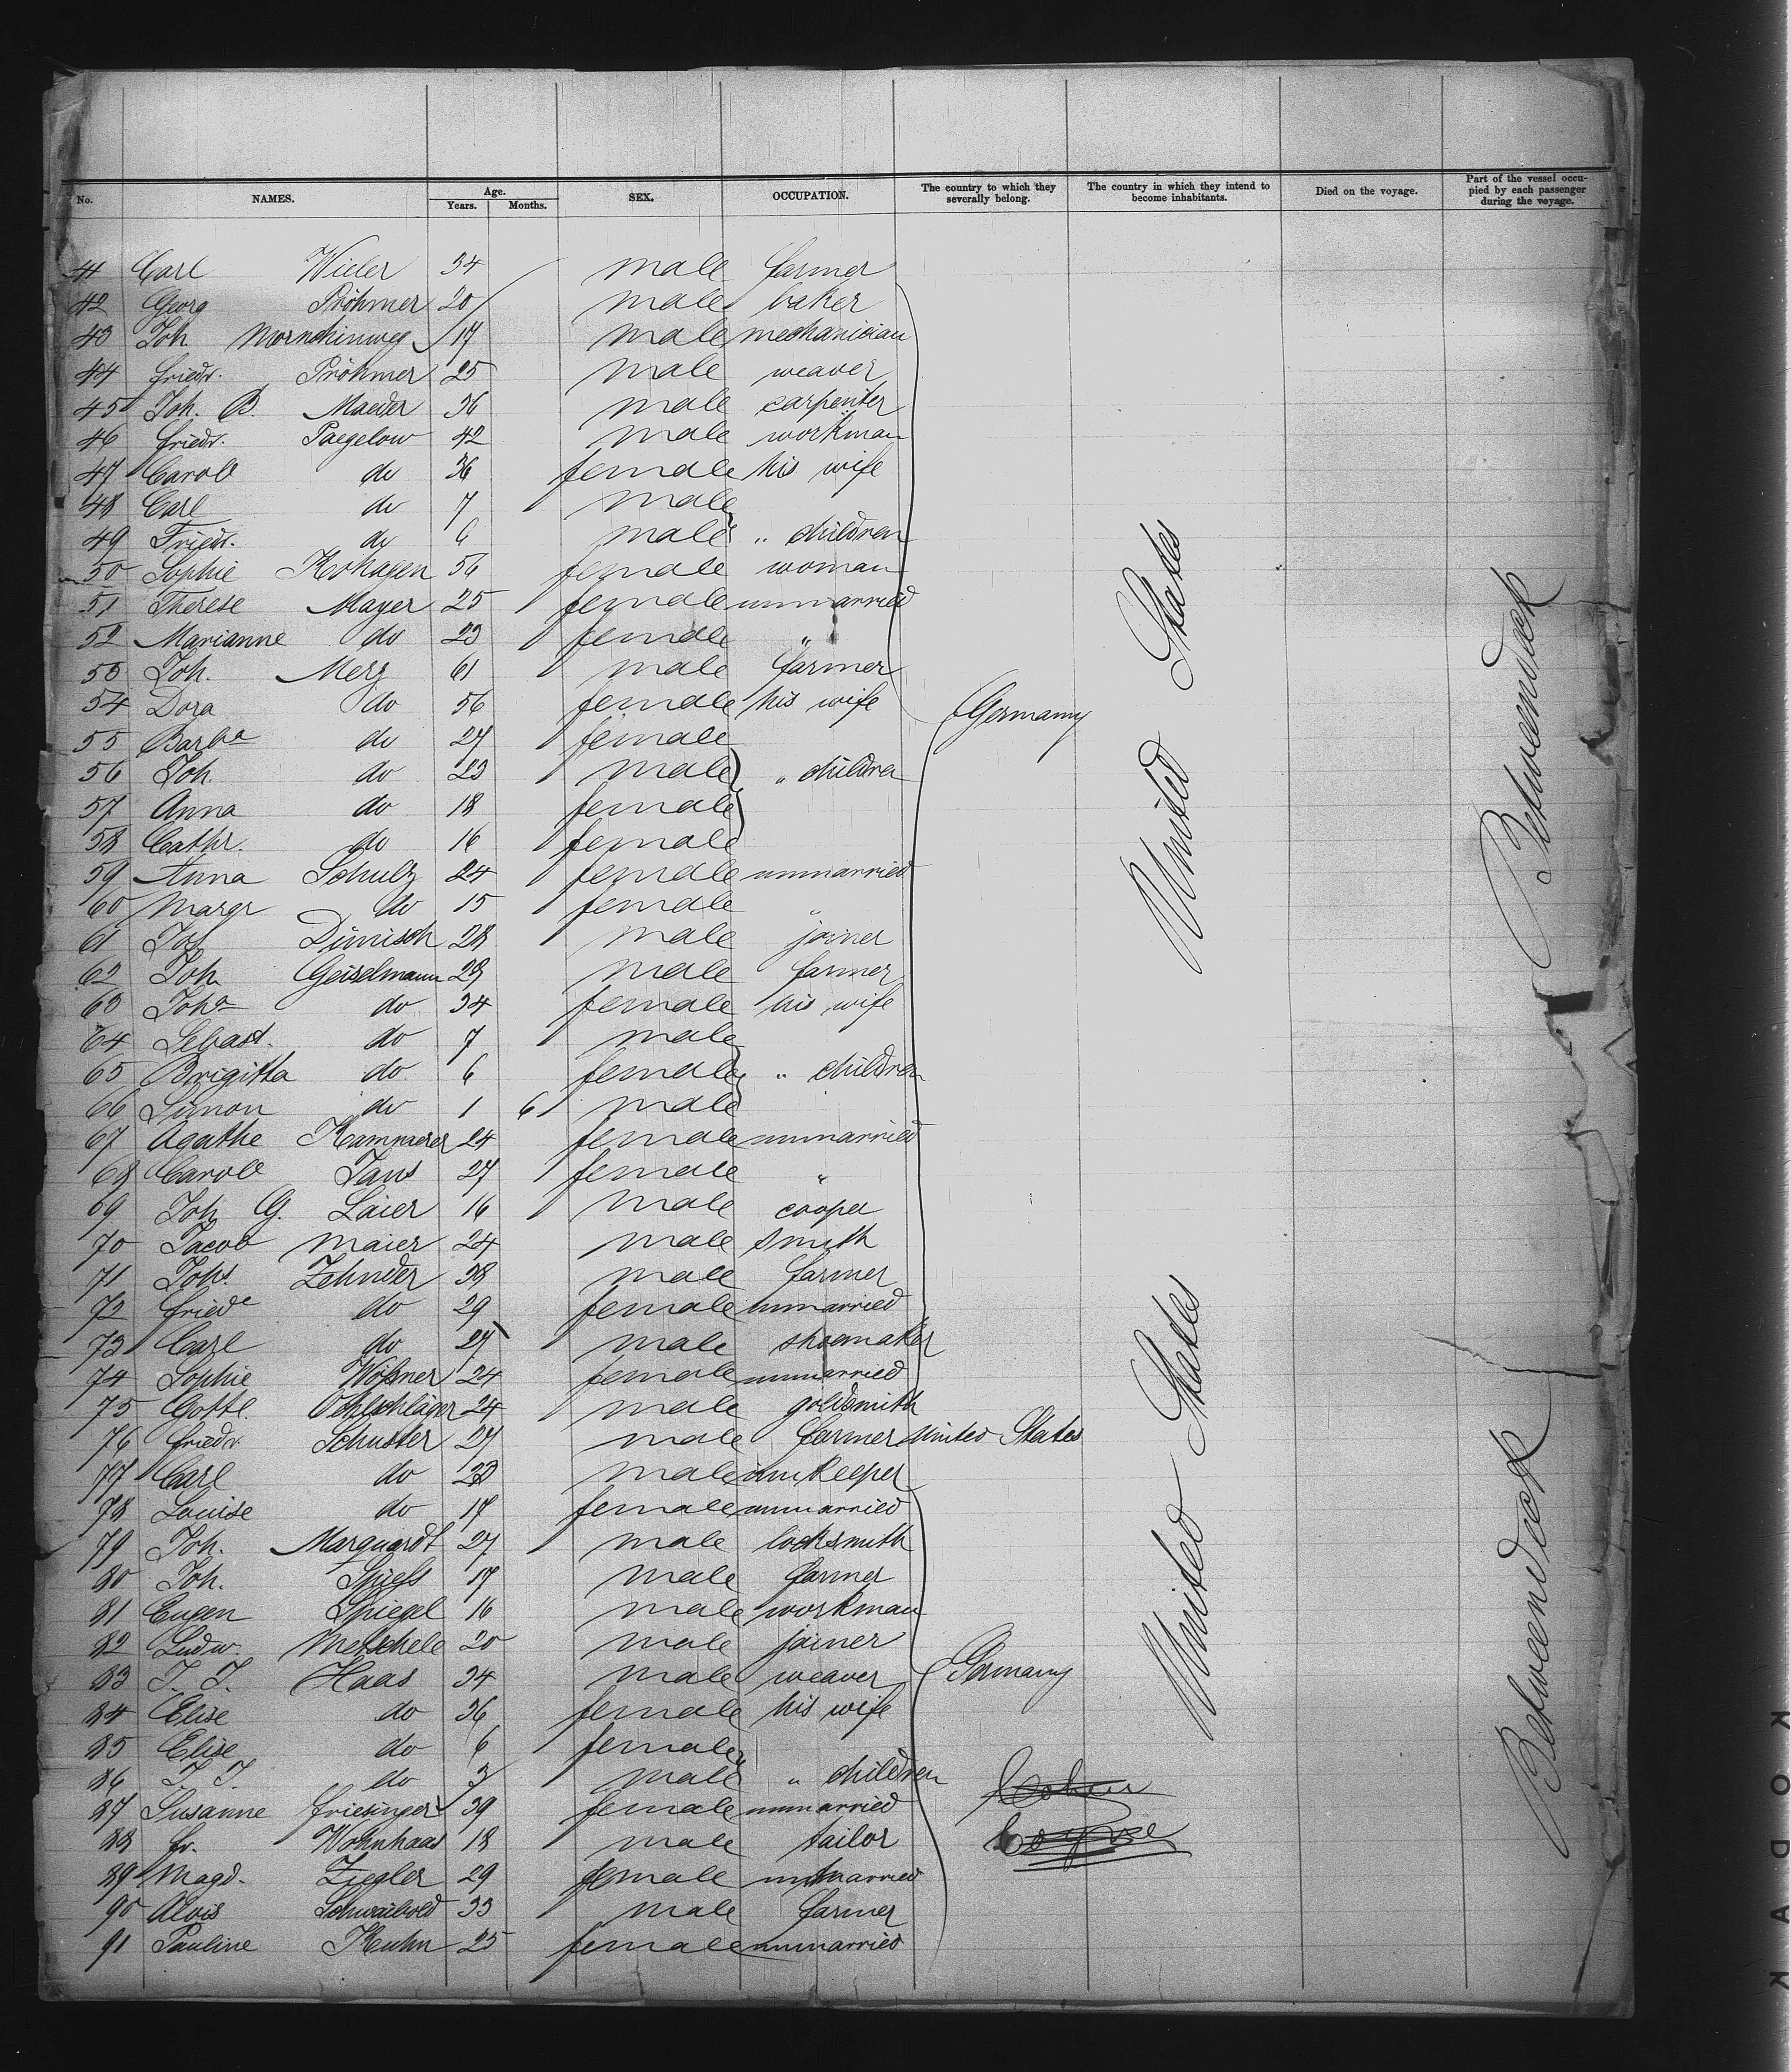 No. NAMES. Age. Years. Months. SEX. OCCUPATION. The country to which they severally belong. The country in which they intend to become inhabitants. Died on the voyage. Part of the vessel occupied by each passenger during the voyage.
41 Carl Wieler 34 male farmer
42 Georg Pröhmer 20 male baker
43 Joh 17 male mechanician
44 Friedr. Pröhmer 25 male weaver
45 Joh. B. Maeder 36 male carpenter
46 Friedr. Paegelow 42 male workman
47 Carol do 36 female his wife
48 Carl do 7 male
49 Friedr. do 6 male " children
50 Sophie Kohagen 56 female woman
51 Therese Mayer 25 female unmarried
52 Marianne do 23 female "
53 Joh. Merz 61 male farmer
54 Dora do 56 female his wife Germany
55 Barba do 27 female
56 Joh. do 23 male " children
57 Anna do 18 female
58 Cathr. do 16 female
59 Anna Schulz 24 female unmarried
60 Margr do 15 female "
61 Jos Dünisch 28 male joiner
62 Joh Geiselmann 28 male farmer
63 Joha do 34 female his wife
64 Sebast. do 7 male
65 Brigitta do 6 female " children
66 Simon do 1 6 male
67 Agathe 24 female unmarried
68 Carol Jaus 27 female "
69 Joh G. Laier 16 male cooper
70 Jacob Maier 24 male smith
71 Johs. Zehnder 38 male farmer
72 Friede do 29 female unmarried
73 Carl do 27 male shoemaker
74 Sophie Wößner 24 female unmarried
75 Gottl. Oehlschläger 24 male goldsmith
76 Friedr Schuster 27 male farmer United States
77 Carl do 23 male innkeeper
78 Louise do 17 female unmarried
79 Joh. Marquardt 27 male locksmith
80 Joh. Spiess 17 male farmer
81 Eugen Spiegel 16 male workman
82 Ludw. Metschele 20 male joiner
83 J. J. Haas 34 male weaver Germany
84 Elise do 36 female his wife
85 Elise do 6 female
86 J. J. do 3 male " children
87 Susanne Friesinger 39 female unmarried
88 Fr. Wohnhaas 18 male tailor
89 Magd. Ziegler 29 female unmarried
90 Alois Schwaibold 33 male farmer
91 Pauline Kuhn 25 female unmarried
United States
United States
Betweendeck
Betweendeck
KODAK